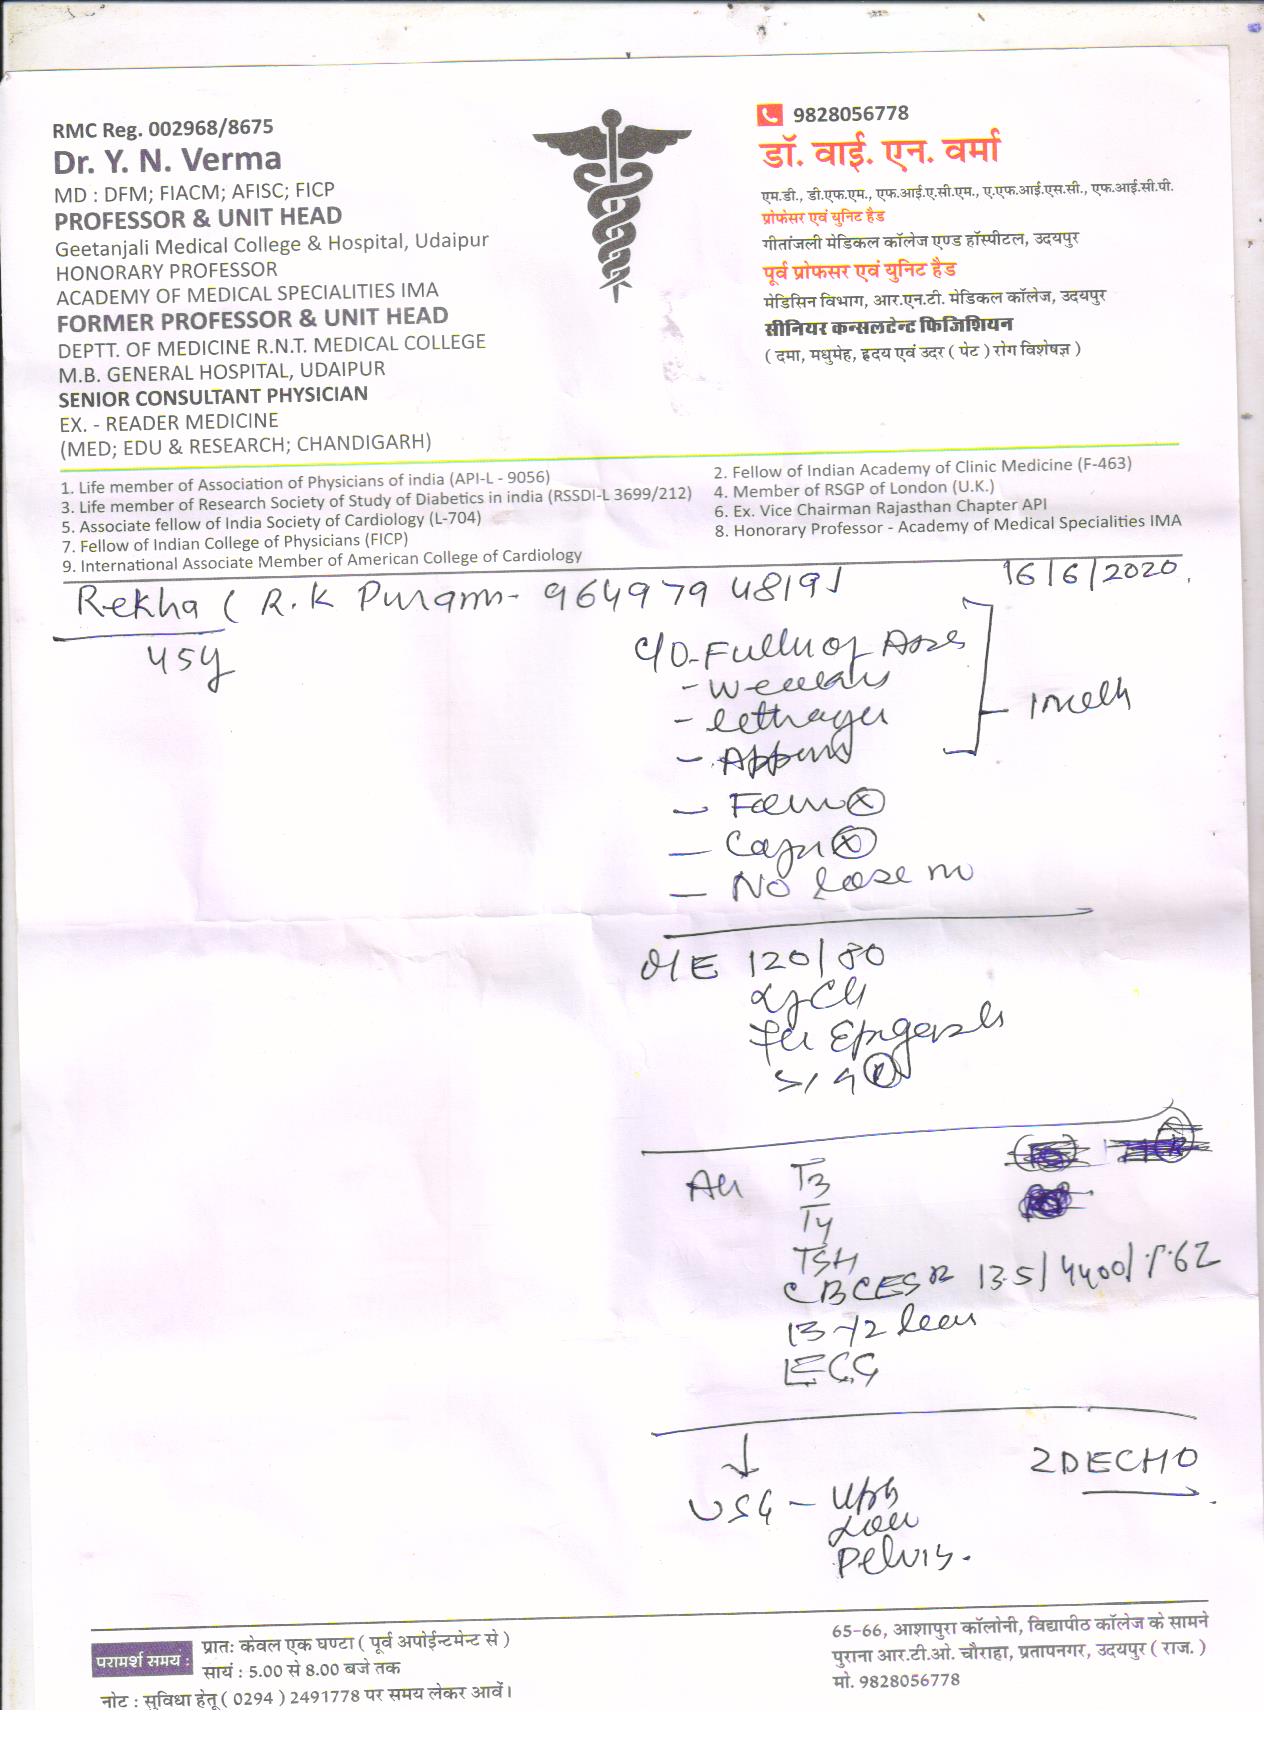 RMC Reg. 002968/8675
Dr. Y. N. Verma
MD : DFM; FIACM; AFISC; FICP
PROFESSOR & UNIT HEAD
Geetanjali Medical College & Hospital, Udaipur
HONORARY PROFESSOR
ACADEMY OF MEDICAL SPECIALITIES IMA
FORMER PROFESSOR & UNIT HEAD
DEPTT. OF MEDICINE R.N.T. MEDICAL COLLEGE
M.B. GENERAL HOSPITAL, UDAIPUR
SENIOR CONSULTANT PHYSICIAN
EX. - READER MEDICINE
(MED; EDU & RESEARCH; CHANDIGARH)
9828056778
डॉ. वाई. एन. वर्मा
एम.डी., डी.एफ.एम., एफ.आई.ए.सी.एम., ए.एफ.आई.एस.सी., एफ.आई.सी.पी.
प्रोफेसर एवं युनिट हैड
गीतांजली मेडिकल कॉलेज एण्ड हॉस्पीटल, उदयपुर
पूर्व प्रोफसर एवं युनिट हैड
मेडिसिन विभाग, आर.एन.टी. मेडिकल कॉलेज, उदयपुर
सीनियर कन्सलटेन्ट फिजिशियन
( दमा, मधुमेह, हृदय एवं उदर ( पेट ) रोग विशेषज्ञ )
1. Life member of Association of Physicians of india (API-L - 9056)
2. Fellow of Indian Academy of Clinic Medicine (F-463)
3. Life member of Research Society of Study of Diabetics in india (RSSDI-L 3699/212)
4. Member of RSGP of London (U.K.)
5. Associate fellow of India Society of Cardiology (L-704)
6. Ex. Vice Chairman Rajasthan Chapter API
7. Fellow of Indian College of Physicians (FICP)
8. Honorary Professor - Academy of Medical Specialities IMA
9. International Associate Member of American College of Cardiology
16/6/2020
Rekha ( R.K Puram - 9649794819)
45y
C/O -
No loose m
O/E 120/80
T3
T4
TSH
CBC ESR 13.5/4400/
ECG
2D ECHO
USG -
Pelvis.
परामर्श समयं :
प्रातः केवल एक घण्टा ( पूर्व अपोईन्टमेन्ट से )
सायं : 5.00 से 8.00 बजे तक
नोट : सुविधा हेतू ( 0294 ) 2491778 पर समय लेकर आवें।
65-66, आशापुरा कॉलोनी, विद्यापीठ कॉलेज के सामने
पुराना आर.टी.ओ. चौराहा, प्रतापनगर, उदयपुर ( राज. )
मो. 9828056778